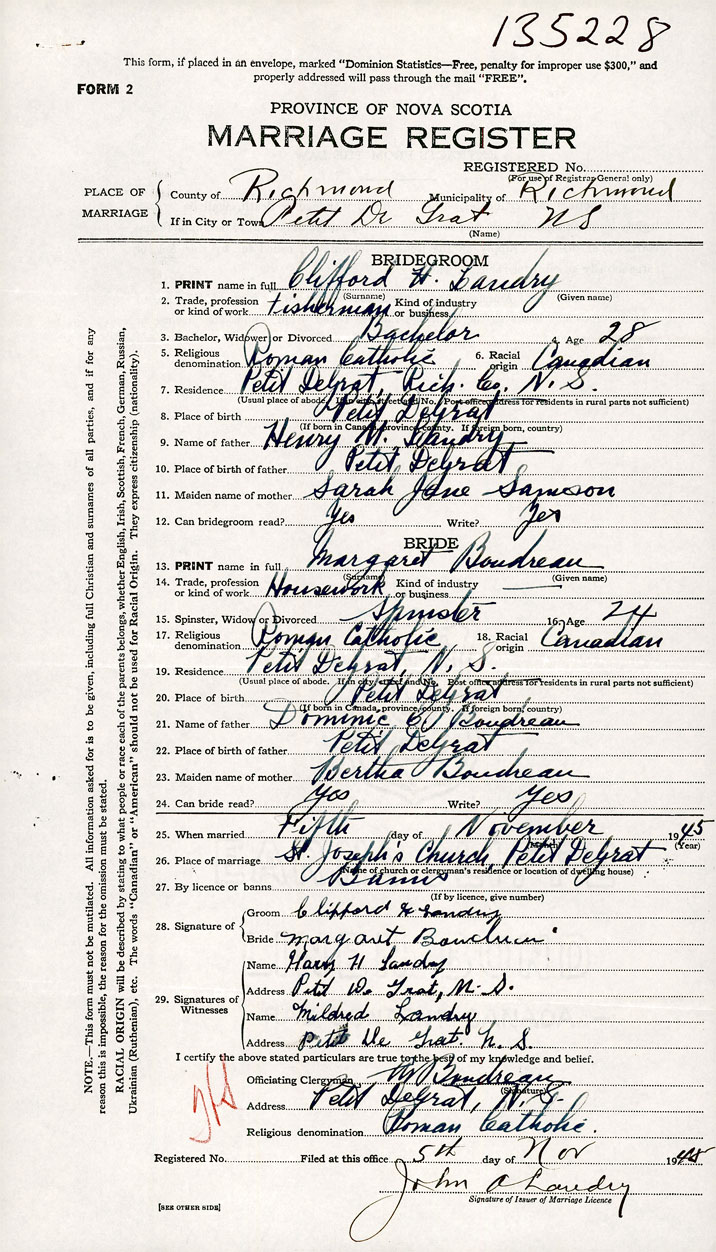 135228
This form, if placed in an envelope, marked "Dominion Statistics—Free, penalty for improper use $300," and
properly addressed will pass through the mail "FREE".
FORM 2
PROVINCE OF NOVA SCOTIA
MARRIAGE REGISTER
REGISTERED No.
(For use of Registrar General only)
PLACE OF MARRIAGE
County of Richmond Municipality of Richmond
If in City or Town Petit De Grat NS
(Name)
BRIDEGROOM
1. PRINT name in full Clifford H. Landry
(Surname) (Given name)
2. Trade, profession or kind of work Fisherman Kind of industry or business
3. Bachelor, Widower or Divorced Bachelor 4. Age 28
5. Religious denomination Roman Catholic 6. Racial origin Canadian
7. Residence Petit DeGrat, Rich. Co. N. S.
(Usual place of abode. If in city, street and No. Post office address for residents in rural parts not sufficient)
8. Place of birth Petit DeGrat
(If born in Canada, province, county. If foreign born, country)
9. Name of father Henry M. Landry
10. Place of birth of father Petit DeGrat
11. Maiden name of mother Sarah Jane Samson
12. Can bridegroom read? Yes Write? Yes
BRIDE
13. PRINT name in full Margaret Boudreau
(Surname) (Given name)
14. Trade, profession or kind of work Housework Kind of industry or business
15. Spinster, Widow or Divorced Spinster 16. Age 24
17. Religious denomination Roman Catholic 18. Racial origin Canadian
19. Residence Petit DeGrat, N. S.
(Usual place of abode. If in city, street and No. Post office address for residents in rural parts not sufficient)
20. Place of birth Petit DeGrat
(If born in Canada, province, county. If foreign born, country)
21. Name of father Dominic Boudreau
22. Place of birth of father Petit DeGrat
23. Maiden name of mother Bertha Boudreau
24. Can bride read? Yes Write? Yes
25. When married Fifth day of November 1945
(Month) (Year)
26. Place of marriage St. Joseph's Church, Petit DeGrat
(Name of church or clergyman's residence or location of dwelling house)
27. By licence or banns Banns
(If by licence, give number)
28. Signature of
Groom Clifford H Landry
Bride Margaret Boudreau
29. Signatures of Witnesses
Name Harry H Landry
Address Petit De Grat, N. S.
Name Mildred Landry
Address Petit De Grat. N. S.
I certify the above stated particulars are true to the best of my knowledge and belief.
Officiating Clergyman Boudreau
(Signature)
Address Petit DeGrat, N. S.
Religious denomination Roman Catholic.
Registered No. Filed at this office 5th day of Nov 1945
John A Landry
Signature of Issuer of Marriage Licence
[SEE OTHER SIDE]
NOTE.—This form must not be mutilated. All information asked for is to be given, including full Christian and surnames of all parties, and if for any
reason this is impossible, the reason for the omission must be stated.
RACIAL ORIGIN will be described by stating to what people or race each of the parents belongs, whether English, Irish, Scottish, French, German, Russian,
Ukrainian (Ruthenian), etc. The words "Canadian" or "American" should not be used for Racial Origin. They express citizenship (nationality).